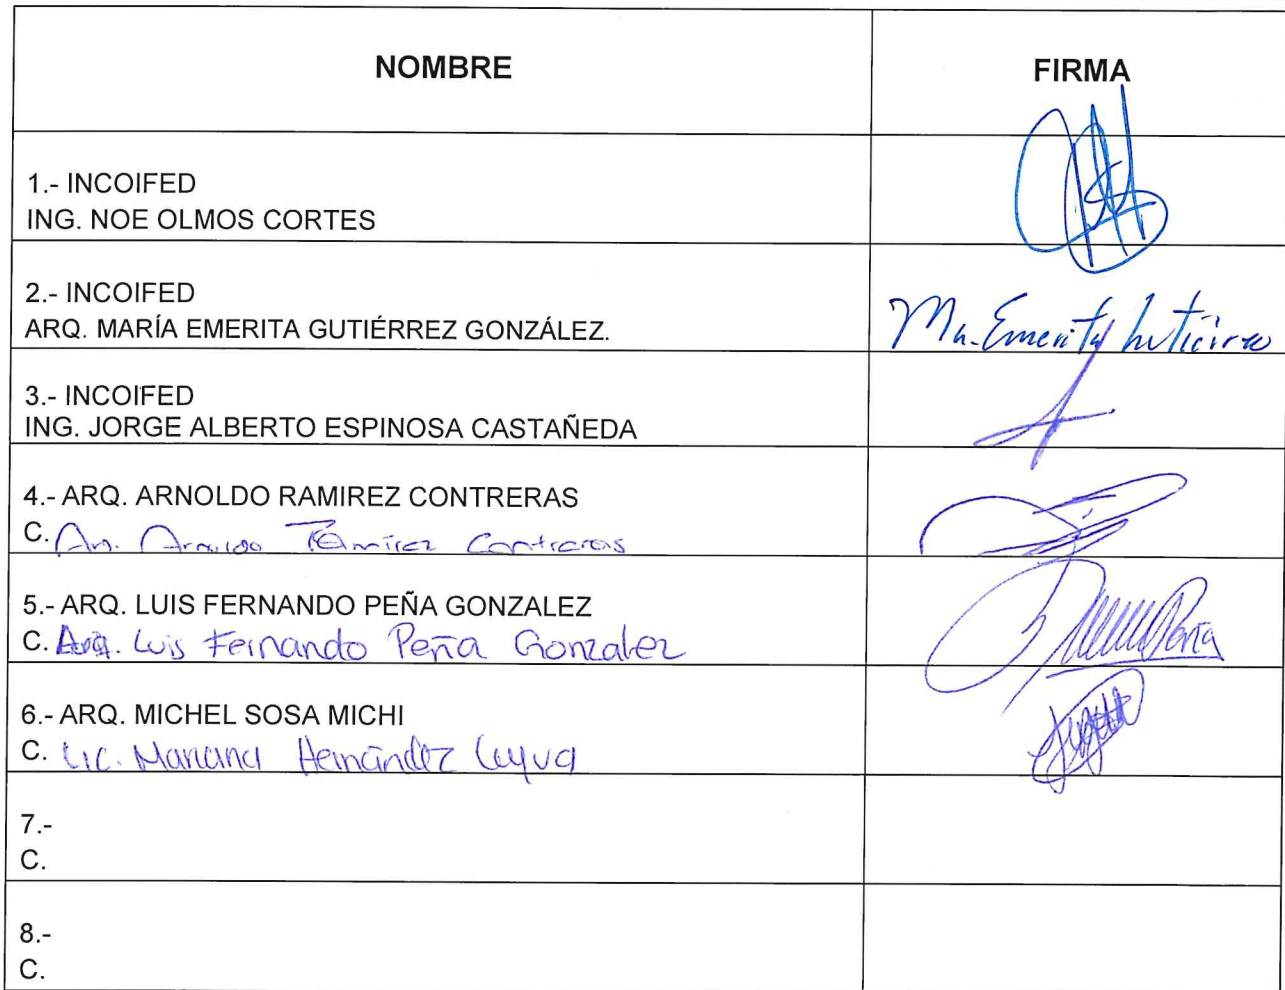 NOMBRE
FIRMA
1.- INCOIFED
ING. NOE OLMOS CORTES
2.- INCOIFED
ARQ. MARÍA EMERITA GUTIÉRREZ GONZÁLEZ.
Ma. Emerita Gutiérrez
3.- INCOIFED
ING. JORGE ALBERTO ESPINOSA CASTAÑEDA
4.- ARQ. ARNOLDO RAMIREZ CONTRERAS
C. Arq. Arnoldo Ramírez Contreras
5.- ARQ. LUIS FERNANDO PEÑA GONZALEZ
C. Arq. Luis Fernando Peña Gonzalez
Peña
6.- ARQ. MICHEL SOSA MICHI
C. Lic. Mariana Hernández Leyva
7.-
C.
8.-
C.